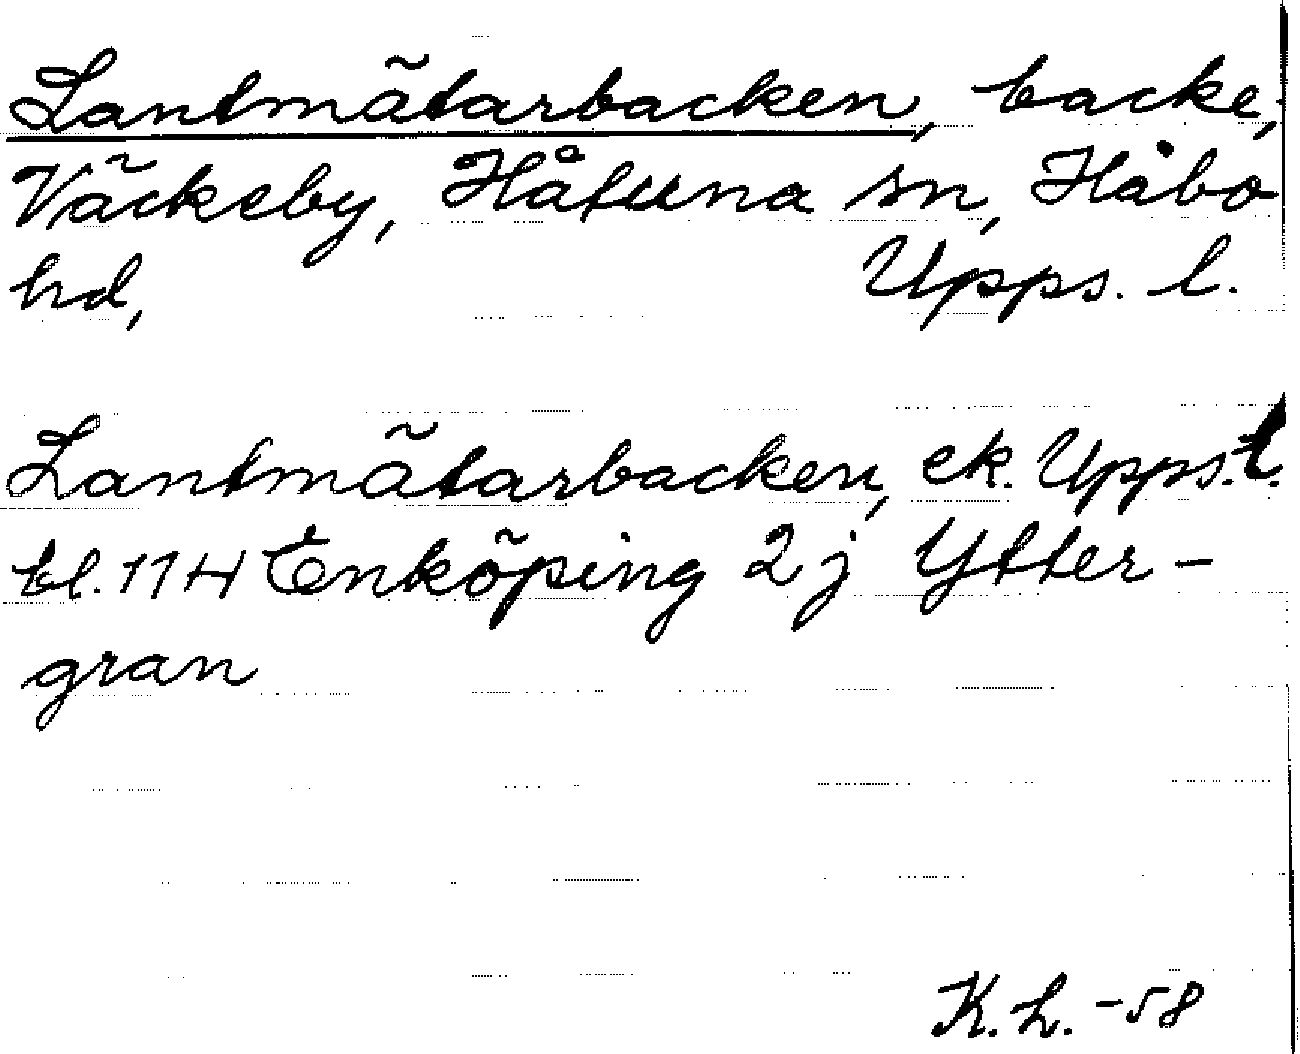 Lantmätarbacken, backe,
Väckeby, Håtuna sn, Håbo
hd, Upps. l.
Lantmätarbacken, ek. Upps. l.
bl. 11H Enköping 2j Ytter-
gran
K. L. -58